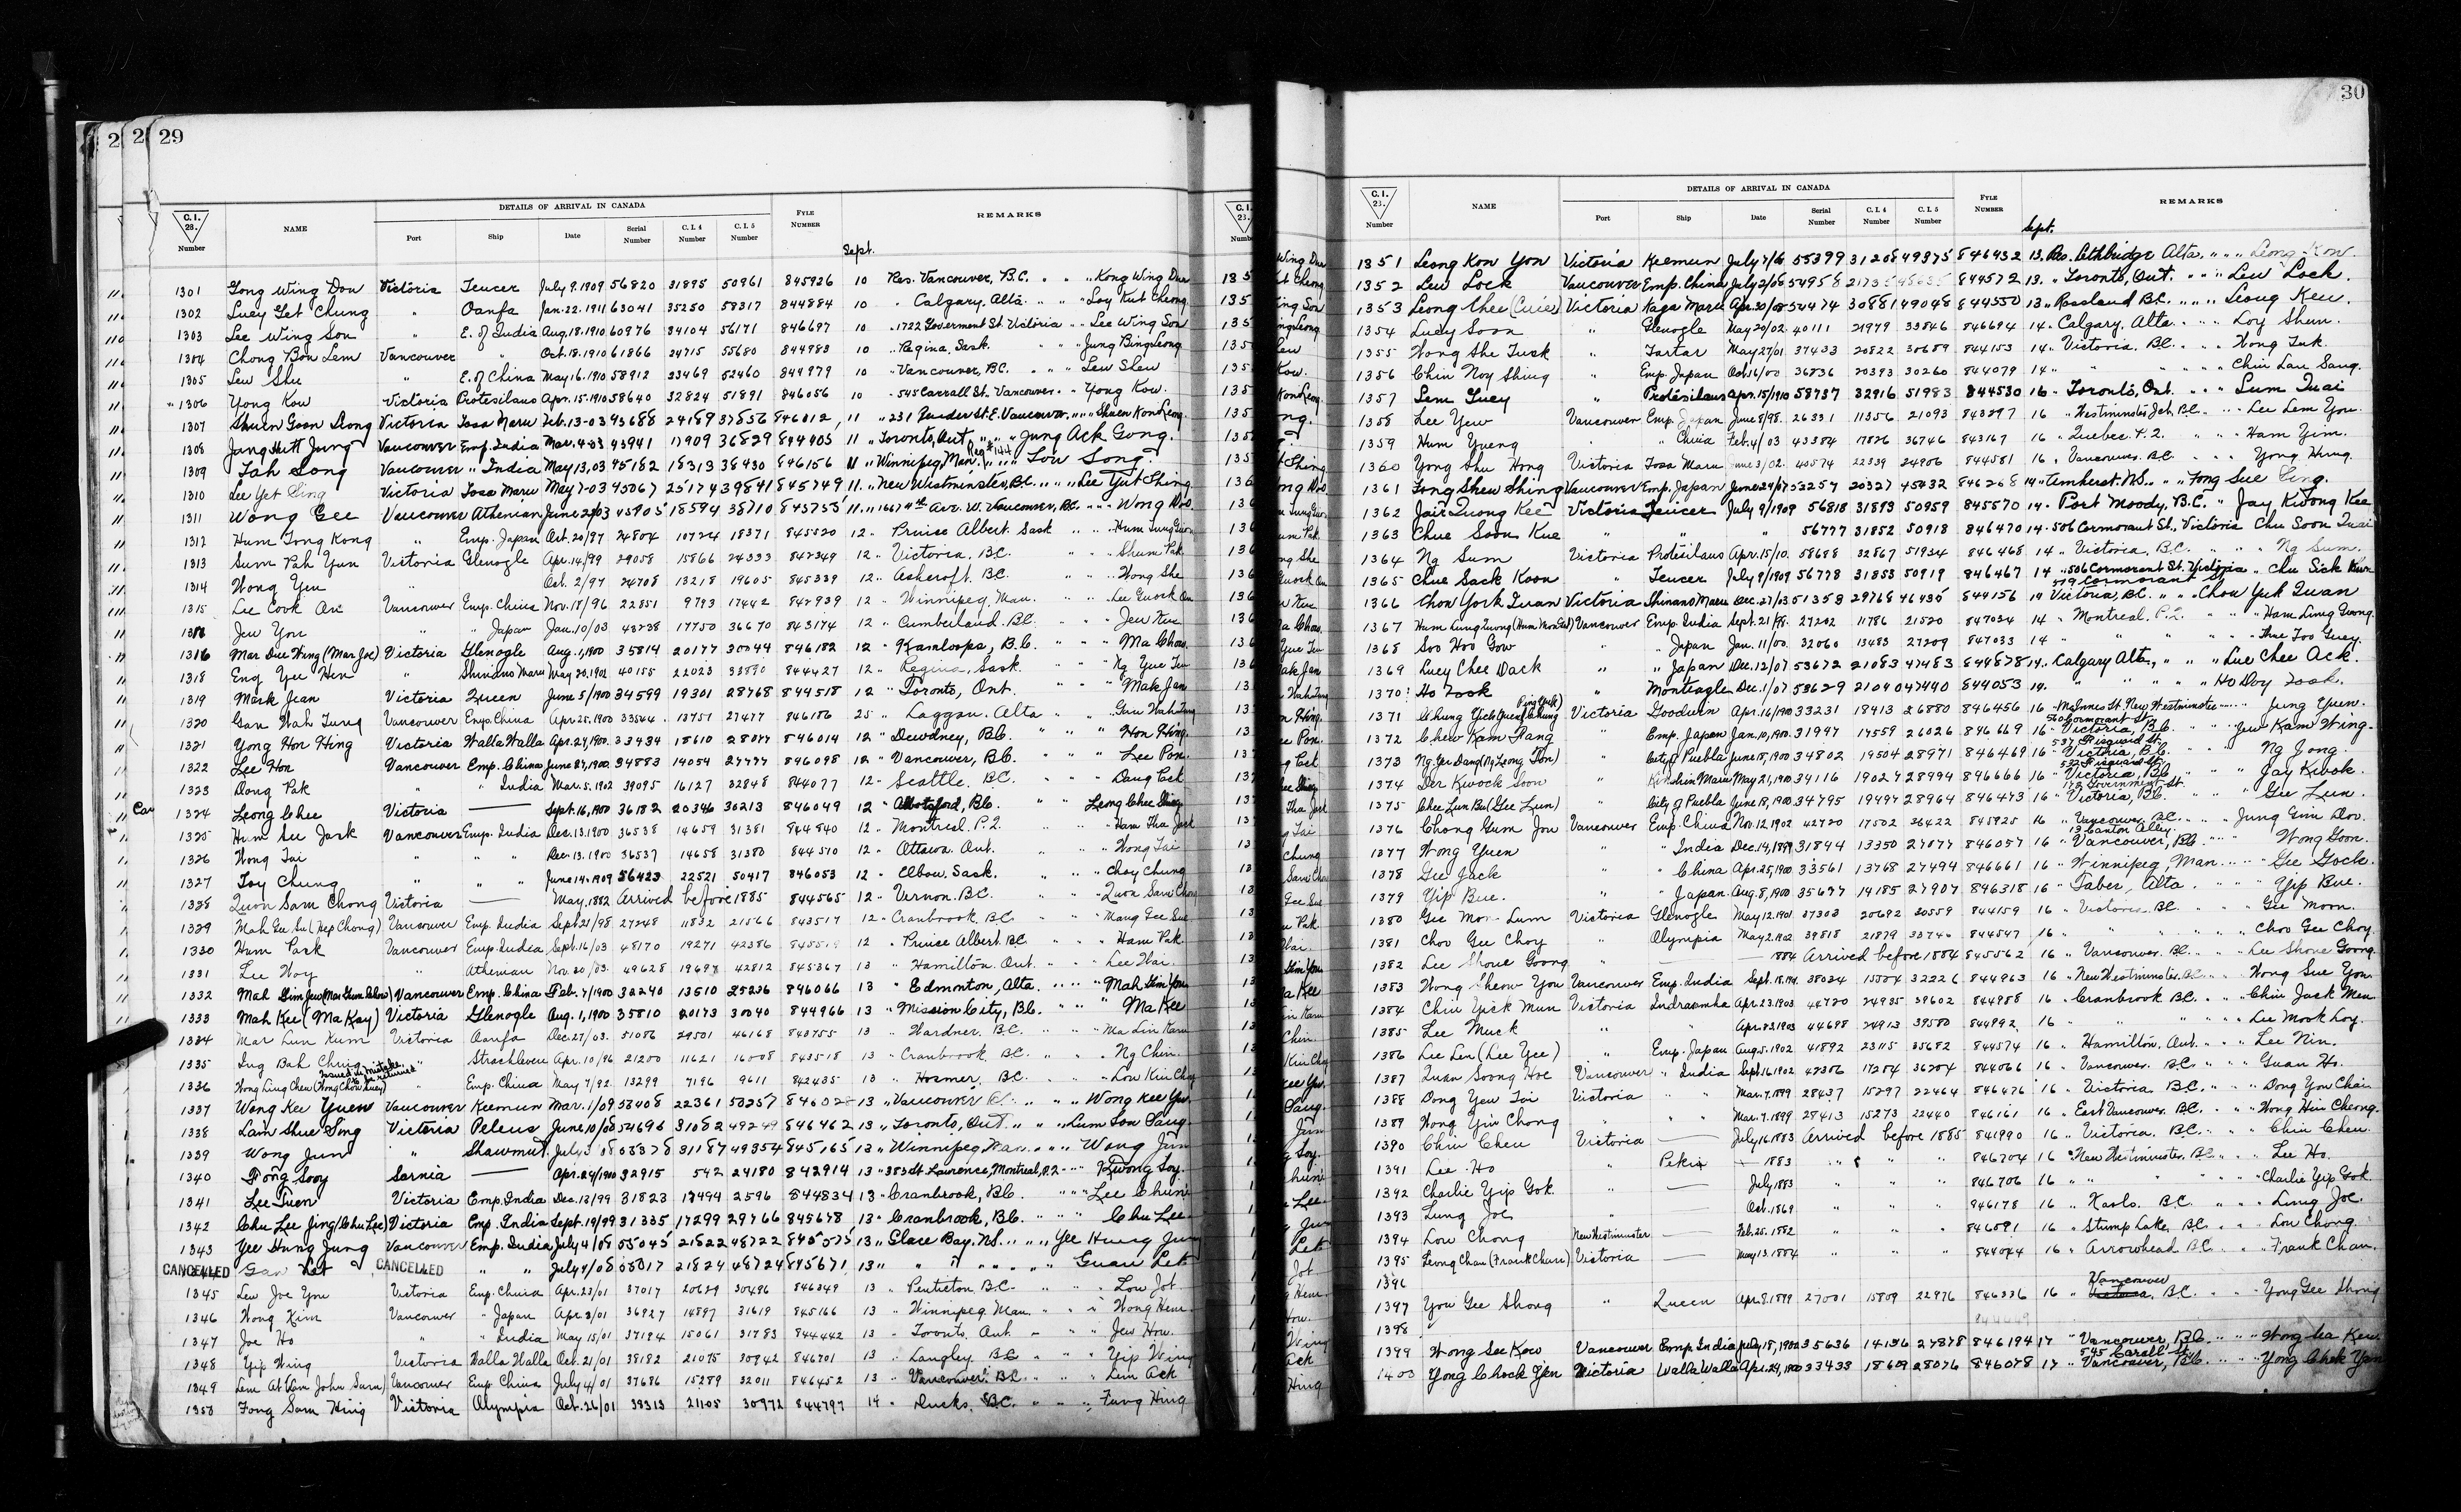 29
DETAILS OF ARRIVAL IN CANADA
C.I. 28. Number NAME Port Ship Date Serial Number C.I.4 Number C.I.5 Number FYLE NUMBER REMARKS
Sept.
1301 Gong Wing Dou Victoria Teucer July 9.1909 56820 31895 50961 845926 10 Res. Vancouver, B.C. " " Kong Wing Dua
1302 Luey Get Chung " Oanfa Jan.22.1911 63041 35250 58317 844884 10 " Calgary, Alta " " Loy Kut Cheong
1303 Lee Wing Son " E. of India Aug.18.1910 60976 34104 56171 846697 10 " 1722 Goverment St. Victoria " " Lee Wing Son
1304 Chong Bon Lem Vancouver " Oct.18.1910 61866 24715 55680 844983 10 " Regina, Sask. " " Jung Bing Leong
1305 Lew Shu " E. of China May 16.1910 58912 23469 52460 844979 10 " Vancouver, B.C. " " Lew Shew
1306 Yong Kow Victoria Protesilaus Apr.15.1910 58640 32824 51891 846056 10 " 545 Carrall St. Vancouver " " Yong Kow
1307 Shuen Goon Leong Victoria Tosa Maru Feb.13-03 43688 24189 37856 846012 11 " 231 Pender St. E. Vancouver " " Shuen Kon Leong
1308 Jung Hett Jung Vancouver Emp. India Mar.4-03 43941 17909 36829 844903 11 " Toronto, Ont " " Jung Ack Gong.
1309 Tah Song Vancouver " India May 13,03 45182 18313 38430 846156 11 " Winnipeg, Man. " " Tou Song.
1310 Lee Yet Sing Victoria Tosa Maru May 7-03 45067 25174 39841 845749 11 " New Westminster, B.C. " " Lee Yut Shing
1311 Wong Gee Vancouver Athenian June 29/03 45905 18594 38710 843755 11 " 166 7th Ave. W. Vancouver, B.C. " " Wong Doo
1312 Hum Tong Kong " Emp. Japan Oct. 20/97 24804 10724 18371 845520 12 " Prince Albert. Sask " " Hum Tung Guon
1313 Sum Pah Yun Victoria Glenogle Apr.14/99 29058 15866 24333 842349 12 " Victoria, B.C. " " Shum Pak
1314 Wong Yeu " " Oct. 2/97 24708 13218 19605 845339 12 " Ashcroft. B.C. " " Wong She
1315 Lee Cook An Vancouver Emp. China Nov.18/96 22851 9793 17442 842939 12 " Winnipeg, Man. " " Lee Quock On
1316 Jew You " " Japan Jan.10/03 43238 17750 36670 843174 12 " Cumberland. B.C. " " Jew Kue
1316 Mar Due Wing (Mar Joe) Victoria Glenogle Aug.1,1900 35814 20177 30044 846182 12 " Kamloops, B.C. " " Ma Chas.
1318 Eng Yu Hen " Shinano Maru May 20.1902 40155 22023 33890 844427 12 " Regina, Sask. " " Ng Yue Tun
1319 Mark Jean Victoria Queen June 5/1900 34599 19301 28768 844518 12 " Toronto, Ont. " " Mak Jan
1320 Gan Wah Tung Vancouver Emp. China Apr.25.1900 33544 13751 27477 846186 25 " Laggan. Alta " " Gan Wah Tung
1321 Yong Hon Hing Victoria Walla Walla Apr.24,1900 33434 18610 28077 846014 12 " Dewdney, B.C. " " Hon Hing.
1322 Lee Hon Vancouver Emp. China June 27,1900 34883 14054 27777 846098 12 " Vancouver, B.C. " " Lee Pon.
1323 Dong Pak " " India Mar.5.1902 39095 16127 32848 844077 12 " Seattle. B.C. " " Dang Pack
1324 Leong Chee Victoria —— Sept.16,1900 36182 20346 30213 846049 12 " Abbotsford, B.C. " " Leong Chee Shing
1325 Hum Su Jack Vancouver Emp. India Dec.13.1900 36538 14659 31381 844840 12 " Montreal. P.Q. " " Ham Tha Jack
1326 Wong Tai " " " Dec.13.1900 36537 14658 31380 844570 12 " Ottawa. Ont. " " Wong Tai
1327 Toy Chung " " " June 14.1909 56423 22521 50417 846053 12 " Elbow. Sask. " " Choy Chung
1328 Quon Sam Chong Victoria —— May,1882 Arrived before 1885 844565 12 " Vernon. B.C. " " Quon Sam Chong
1329 Mah Gee Su (Hep Chong) Vancouver Emp. India Sept.21/98 27248 11832 21566 843517 12 " Cranbrook, B.C. " " Mang Gee Sue
1330 Ham Park Vancouver Emp. India Sept.16/03 48170 19271 42386 12 " Prince Albert. B.C. " " Ham Pak
1331 Lee Woy " Athenian Nov.30/03 49628 19697 42812 845367 13 " Hamilton. Ont. " " Lee Wai.
1332 Mah Gim Jew Vancouver Emp. China Feb.7/1900 32240 13510 25236 846066 13 " Edmonton, Alta. " " Mah Gim You
1333 Mah Kee (Ma Kay) Victoria Glenogle Aug.1,1900 35810 20173 30040 844966 13 " Mission City, B.C. " " Ma Kee
1334 Mar Lun Kum Victoria Oanfa Dec.27/03. 51086 29501 46168 843755 13 " Wardner, B.C. " " Ma Lin Kum
1335 Ing Bah Ching " Strathleven Apr.10/96 21200 11621 16008 843518 13 " Cranbrook, B.C. " " Ng Chin.
Issued in mistake to be returned
1336 Wong Ling Chew (Wong Chow Luey) " Emp. China May 7/92 13299 7196 9611 842435 13 " Hosmer, B.C. " " Low Kin Choy
1337 Wong Kee Yuen Vancouver Keemun Mar.1/09 58408 22361 50257 13 " Vancouver B.C. " " Wong Kee Yue
1338 Lam Shue Sing Victoria Peleus June 10/08 54696 31082 49249 846462 13 " Toronto, Ont. " " Lum Son Sang.
1339 Wong Jun " Shawmut July 3 08 55378 31187 49354 845165 13 " Winnipeg, Man. " " Wong Jun
1340 Fong Sooy Sarnia —— Apr.24/1900 32915 542 24180 842914 13 " 383 St Lawrence, Montreal, P.Q. " " Kwong Soy.
1341 Lee Tuen Victoria Emp. India Dec.13/99 31823 17494 2596 844834 13 " Cranbrook, B.C. " " Lee Chun
1342 Chu Lee Jing (Chu Lee) Victoria Emp. India Sept.19/99 31335 17299 29766 845678 13 " Cranbrook, B.C. " " Chu Lee
1343 Yee Hung Jung Vancouver Emp. India July 4/08 55045 21822 48722 845575 13 " Glace Bay, N.S. " " Yee Hung Jun
CANCELLED Gan Let CANCELLED " " July 4/08 55017 21824 48724 845671 13 " " " " " Guan Let
1345 Lew Joe You Victoria Emp. China Apr.23/01 37017 20629 30496 846349 13 " Penticton. B.C. " " Low Jot
1346 Wong Kim Vancouver " Japan Apr.3/01 36927 14897 31619 845166 13 " Winnipeg. Man. " " Wong Hem.
1347 Joe Ho " " India May 15/01 37194 15061 31783 844442 13 " Toronto, Ont. " " Jew How.
1348 Yip Wing Victoria Walla Walla Oct.21/01 38182 21075 30942 846701 13 " Langley, B.C. " " Yip Wing
1349 Lem At (Lem John Sum) Vancouver Emp. China July 4/01 37686 15289 32011 846452 13 " Vancouver. B.C. " " Lim Ack
1350 Fong Sam Hing Victoria Olympia Oct.26/01 38313 21105 30972 844797 14 " Ducks, B.C. " " Fung Hing
30
DETAILS OF ARRIVAL IN CANADA
C.I. 23. Number NAME Port Ship Date Serial Number C.I.4 Number C.I.5 Number FYLE NUMBER REMARKS
Sept.
1351 Leong Kon Yon Victoria Keemun July 7/08 55399 31208 49375 846432 13. Res. Lethbridge Alta. " " Leong Kow.
1352 Lew Lock Vancouver Emp. China July 2/08 54958 844572 13. " Toronto, Ont. " " Lew Lock.
1353 Leong Chee (Cuie) Victoria Kaga Maru Apr.20/08 54474 30881 49048 844550 13 " Rossland B.C. " " Leong Keu.
1354 Luey Soon " Glenogle May 20/02. 40111 21979 33846 846694 14 " Calgary, Alta. " " Loy Shun.
1355 Wong She Tusk " Tartar May 27/01 37433 20822 30689 844153 14 " Victoria. B.C. " " Wong Tuk.
1356 Chin Noy Shing " Emp. Japan Oct.16/00 36836 20393 30260 844079 14 " " " " Chin Lan Sang.
1357 Lem Guey " Protesilaus Apr.15/1910 58737 32916 51983 844530 16 " Toronto, Ont. " " Lum Quai
1358 Lee Yew Vancouver Emp. Japan June 8/98. 26331 11356 21093 843297 16 " Westminster Jct. B.C. " " Lee Lem You.
1359 Hum Yueng " " China Feb.4/03 43384 17826 36746 843167 16 " Quebec. P.Q. " " Ham Yim.
1360 Yong Shu Hong Victoria Tosa Maru June 3/02. 40574 22339 24906 844581 16 " Vancouver. B.C. " " Yong Hung.
1361 Fong Shew Shing Vancouver Emp. Japan June 24/07 53257 20327 45032 846268 14 " Amherst. N.S. " " Fong Sue Sing.
1362 Jair Quong Kee Victoria Teucer July 9/1909 56818 31893 50959 845570 14 " Port Moody, B.C. " Jay Kwong Kee
1363 Chue Soon Kue " " " 56777 31852 50918 846470 14 " 506 Cormorant St., Victoria Chu Soon Quai
1364 Ng Sum Victoria Protesilaus Apr.15/10. 58688 32867 51934 846468 14 " Victoria, B.C. " " Ng Sum.
1365 Chue Sack Koon " Teucer July 9/1909 56778 31853 50919 846467 14 " 506 Cormorant St. Victoria " Chu Sick Kun
579 Cormorant St
1366 Chow York Quan Victoria Shinano Maru Dec.27/03 51353 29768 46435 844156 14 Victoria, B.C. " " Chow Yuk Quan
1367 Hum Lung Quong (Hum Mon Gat) Vancouver Emp. India Sept.21/98. 27202 11786 21520 847034 14 " Montreal. P.Q. " " Ham Lung Quong.
1368 Soo Hoo Gow " " Japan Jan.11/00. 32060 13483 27209 847033 14 " " " " Thue Foo Guey.
1369 Luey Chee Dack " " Japan Dec.12/07 53672 21083 47483 844878 14. " Calgary Alta., " " Lue Chee Ack.
1370 Ho Took " Monteagle Dec.1/07 53629 21040 47440 844053 14. " " " " Ho Doy Took.
1371 Chung Yick Yuen Victoria Goodwin Apr.16/1900 33231 18413 26880 846456 16 " McInnes St. New Westminster " " Jung Yuen.
560 Cormorant St
1372 Chew Kam Hang " Emp. Japan Jan.10,1900. 31997 17559 26026 846669 16 " Victoria, B.C. " " Jew Kam Wing.
537 Fisguard St.
1373 Ng Yee Dang (Ng Leong Don) " City of Puebla June 18,1900 34802 19504 28971 846469 16 " Victoria, B.C. " " Ng Jong.
532 Fisguard St.
1374 Der Kwock Soon " Kinshin Maru May 21,1900 34116 19027 28994 846666 16 " Victoria, B.C. " " Jay Kwok.
1725 Government St.
1375 Chee Lun Bu (Gee Lun) " City of Puebla June 18,1900 34795 19497 28964 846473 16 " Victoria, B.C. " " Gee Lun.
1376 Chong Gum Jow Vancouver Emp. China Nov.12.1902 42720 17502 36422 845925 16 " Vancouver. B.C. " " Jung Gim Dow.
13 Canton Alley.
1377 Wong Yuen " " India Dec.14,1899 31844 13350 27077 846057 16 " Vancouver, B.C. " " Wong Goon.
1378 Gee Jack " " China Apr.25,1900 33561 13768 27494 846661 16 " Winnipeg, Man. " " Gee Gock.
1379 Yip Bue. " " Japan Aug.8,1900 35677 14185 27907 846318 16 " Taber, Alta. " " Yip Bue.
1380 Gee Mon Lum Victoria Glenogle May 12.1901 37303 20692 30559 844159 16 " Victoria. B.C. " " Gee Moon.
1381 Choo Gee Choy " Olympia May 2.1902 39818 21879 33746 844547 16 " " " " Choo Gee Choy.
1382 Lee Shoue Goong " —— 1884 Arrived before 1884 845562 16 " Vancouver. B.C. " " Lee Shone Goong.
1383 Wong Sheow You Vancouver Emp. India Sept.18.1901 38024 15504 32226 844963 16 " New Westminster. B.C. " " Wong Sue You.
1384 Chin Yick Mun Victoria Indrasamha Apr.23.1903 44720 24935 39602 844988 16 " Cranbrook B.C. " " Chin Jack Men
1385 Lee Muck " " Apr.23.1903 44698 24913 39580 844992 16 " " " " Lee Mook Loy.
1386 Lee Len (Lee Yee) " Emp. Japan Aug.5.1902 41892 23115 35682 844574 16 " Hamilton. Ont. " " Lee Nin.
1387 Quan Soong Hoe Vancouver " India Sept.16.1902 42306 17284 36204 844066 16 " Vancouver. B.C. " " Guan Ho.
1388 Dong Yew Tai Victoria " " Mar.7.1899 28437 15297 22464 846476 16 " Victoria B.C. " " Dong You Chai
1389 Wong Yin Chong " " " Mar.7.1899 28413 15273 22440 846161 16 " East Vancouver. B.C. " " Wong Hin Cheong.
1390 Chin Chew Victoria —— July 16.1883 Arrived before 1885 841990 16 " Victoria. B.C. " " Chin Chew.
1391 Lee Ho " Pekin 1883 " " " 846704 16 " New Westminster. B.C. " " Lee Ho.
1392 Charlie Yip Gok. " —— July,1883 " " " 846706 16 " " " " Charlie Yip Gok.
1393 Lung Joe " Oct.1869 " " " 846178 16 " Kaslo. B.C. " " Lung Joe.
1394 Low Chong New Westminster —— Feb.25.1882 " " " 846591 16 " Stump Lake, B.C. " " Lou Chong
1395 Leong Chan (Frank Chan) Victoria —— May 13.1884 " " " 844044 16 " Arrowhead B.C. " " Frank Chan.
1396
Vancouver
1397 You Gee Shong " Queen Apr.8.1899 27001 15809 22976 846336 16 " Victoria, B.C. " " Yong Gee Shong
1398
1399 Wong See Kow Vancouver Emp. India July 18,1900 35636 14156 27878 846194 17 " Vancouver, B.C. " " Wong Sea Kew
545 Carall St.
1400 Yong Chock Yen Victoria Walla Walla Apr.24,1900 33433 18609 28076 846078 17 " Vancouver, B.C. " " Yong Chek Yan